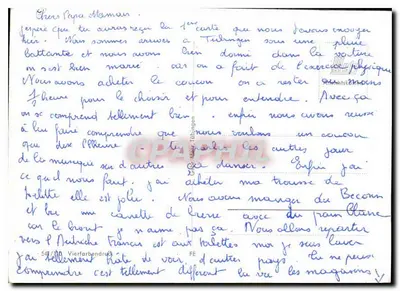 Chers Papa Maman.
j'espère que tu auras reçu la 1ère carte que nous t'avons envoyer
hier. Nous sommes arrivés à Tubingen sous une pluie
battante et nous avons bien dormi dans la voiture
on s'est bien marré. car on a fait de l'exercice physique
Nous avons acheter le coucou on a rester au moins
1 heure pour le choisir et pour entendre. Avec ça
on se comprend tellement bien. enfin nous avons reussi
à leur faire comprendre que nous voulons un coucou
que dès l'heure les autres joue
de la musique ou d'autres danser. Enfin j'ai
ce qu'il nous faut. j'ai acheter ma trousse de
toilette elle est jolie. Nous avons manger du Becon
et bu une canette de bierre avec du pain blanc
on le bront je n'aime pas ça. Nous allons repartir
vers l'Autriche Francis est aux toilettes moi je suis laver
j'ai tellement hâte de voir d'autres pays. Tu ne peux
comprendre c'est tellement différent la vie les magasins!
Vierfarbendruck
PE